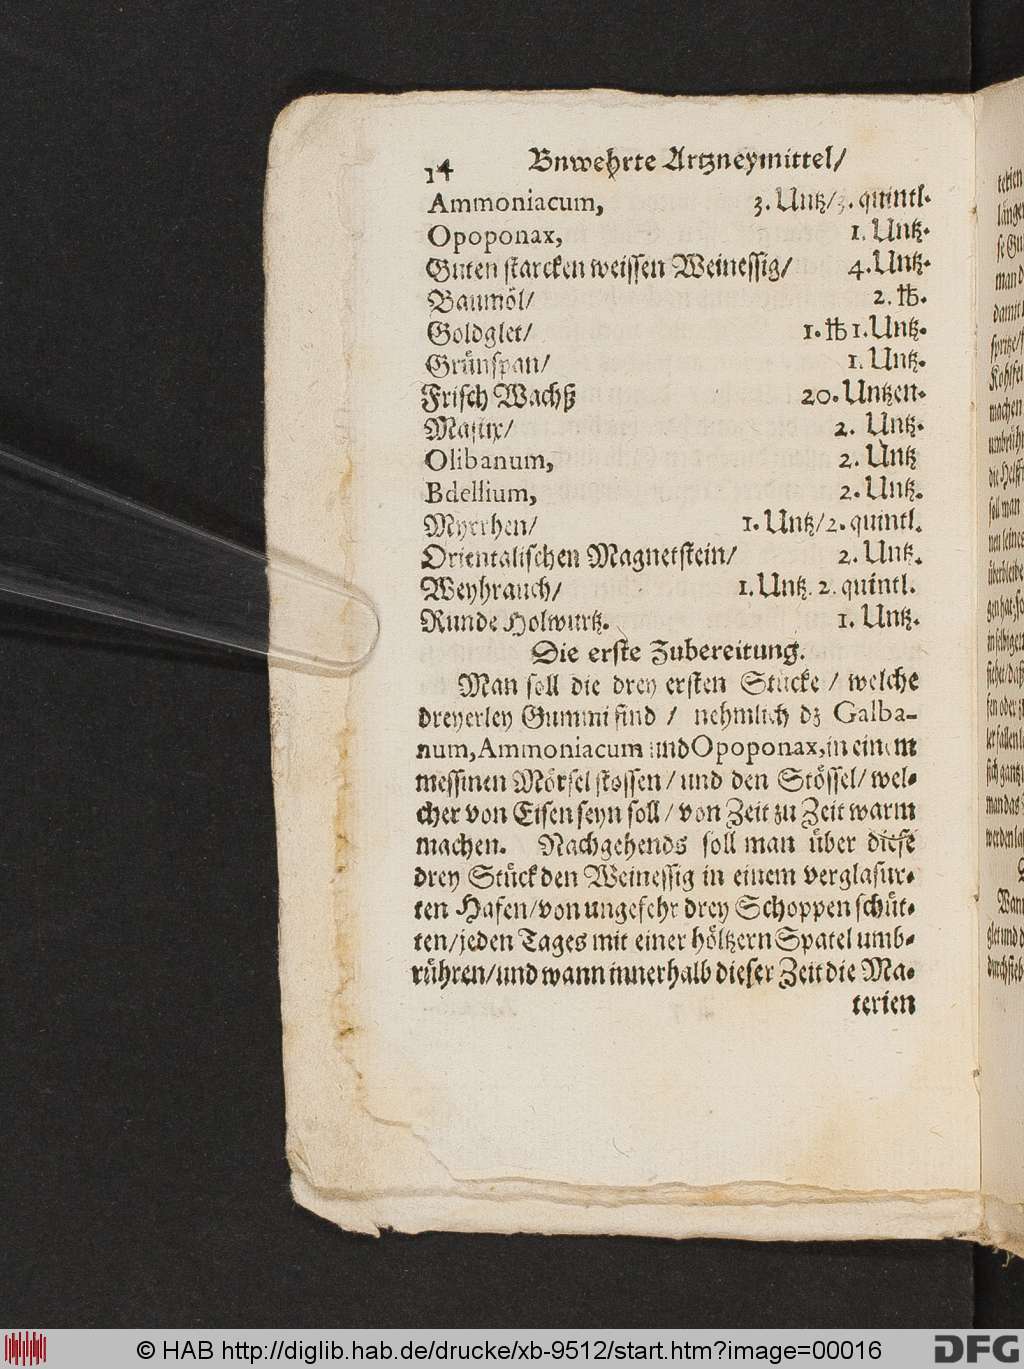 14 Bnwehrte Artzneymittel/
Ammoniacum, 3. Untz/3. quintl.
Opoponax, 1. Untz.
Guten starcken weissen Weinessig/ 4. Untz.
Baumöl/ 2. ℔.
Goldglet/ 1. ℔ 1. Untz.
Grünspan/ 1. Untz.
Frisch Wachß 20. Untzen.
Mastix/ 2. Untz.
Olibanum, 2. Untz
Bdellium, 2. Untz.
Myrrhen/ 1. Untz/2. quintl.
Orientalischen Magnetstein/ 2. Untz.
Weyhrauch/ 1. Untz. 2. quintl.
Runde Holwurtz. 1. Untz.
Die erste Zubereitung.
Man soll die drey ersten Stücke / welche
dreyerley Gummi sind / nehmlich dz Galba-
num, Ammoniacum und Opoponax, in einem
messinen Mörsel stossen / und den Stössel / wel-
cher von Eisen seyn soll / von Zeit zu Zeit warm
machen. Nachgehends soll man über diese
drey Stück den Weinessig in einem verglasur-
ten Hafen/von ungefehr drey Schoppen schüt-
ten/jeden Tages mit einer höltzern Spatel umb-
rühren/und wann innerhalb dieser Zeit die Ma-
terien
© HAB http://diglib.hab.de/drucke/xb-9512/start.htm?image=00016
DFG